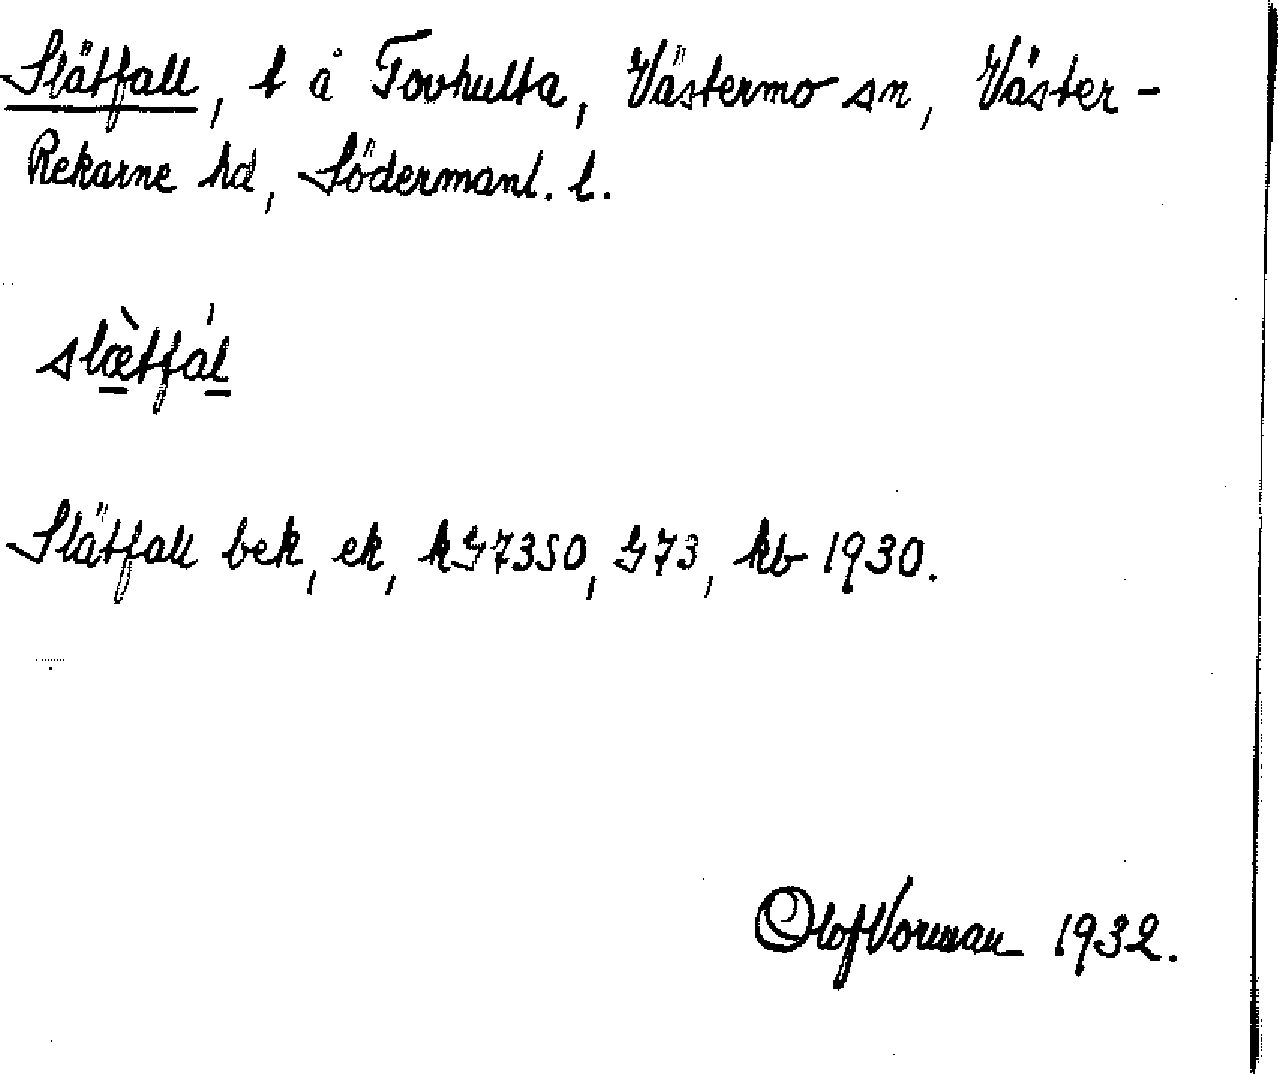 Slätfall, t å Tovhulta, Västermo sn, Väster-
Rekarne hd, Södermanl. l.
slæ̀tfál
Slätfall bek, ek, kG7350, G73, kb 1930.
Olof Vorman 1932.